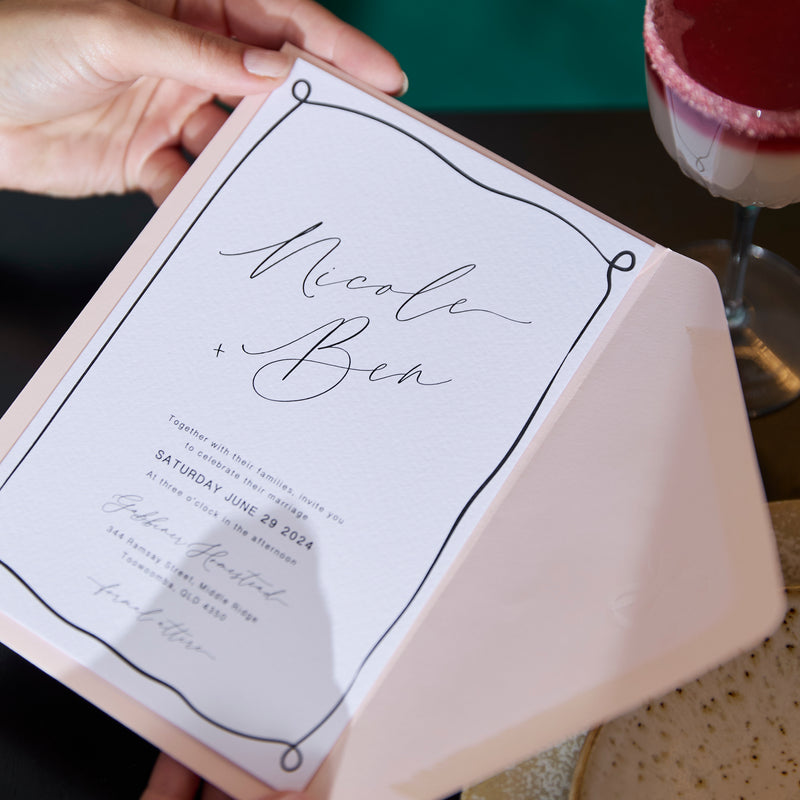 Nicole
+ Ben
Together with their families, invite you
to celebrate their marriage
SATURDAY JUNE 29 2024
At three o'clock in the afternoon
Gabbinar Homestead
344 Ramsay Street, Middle Ridge
Toowoomba, QLD 4350
formal attire